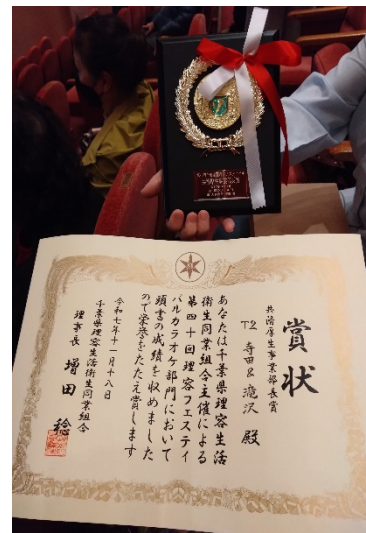 賞状
共済厚生事業部長賞
T2 寺田&滝沢 殿
あなたは千葉県理容生活
衛生同業組合主催による
第四十回理容フェスティ
バルカラオケ部門において
頭書の成績を収めました
ので栄誉をたたえ賞します
令和七年十一月十八日
千葉県理容生活衛生同業組合
理事長 増田 稔